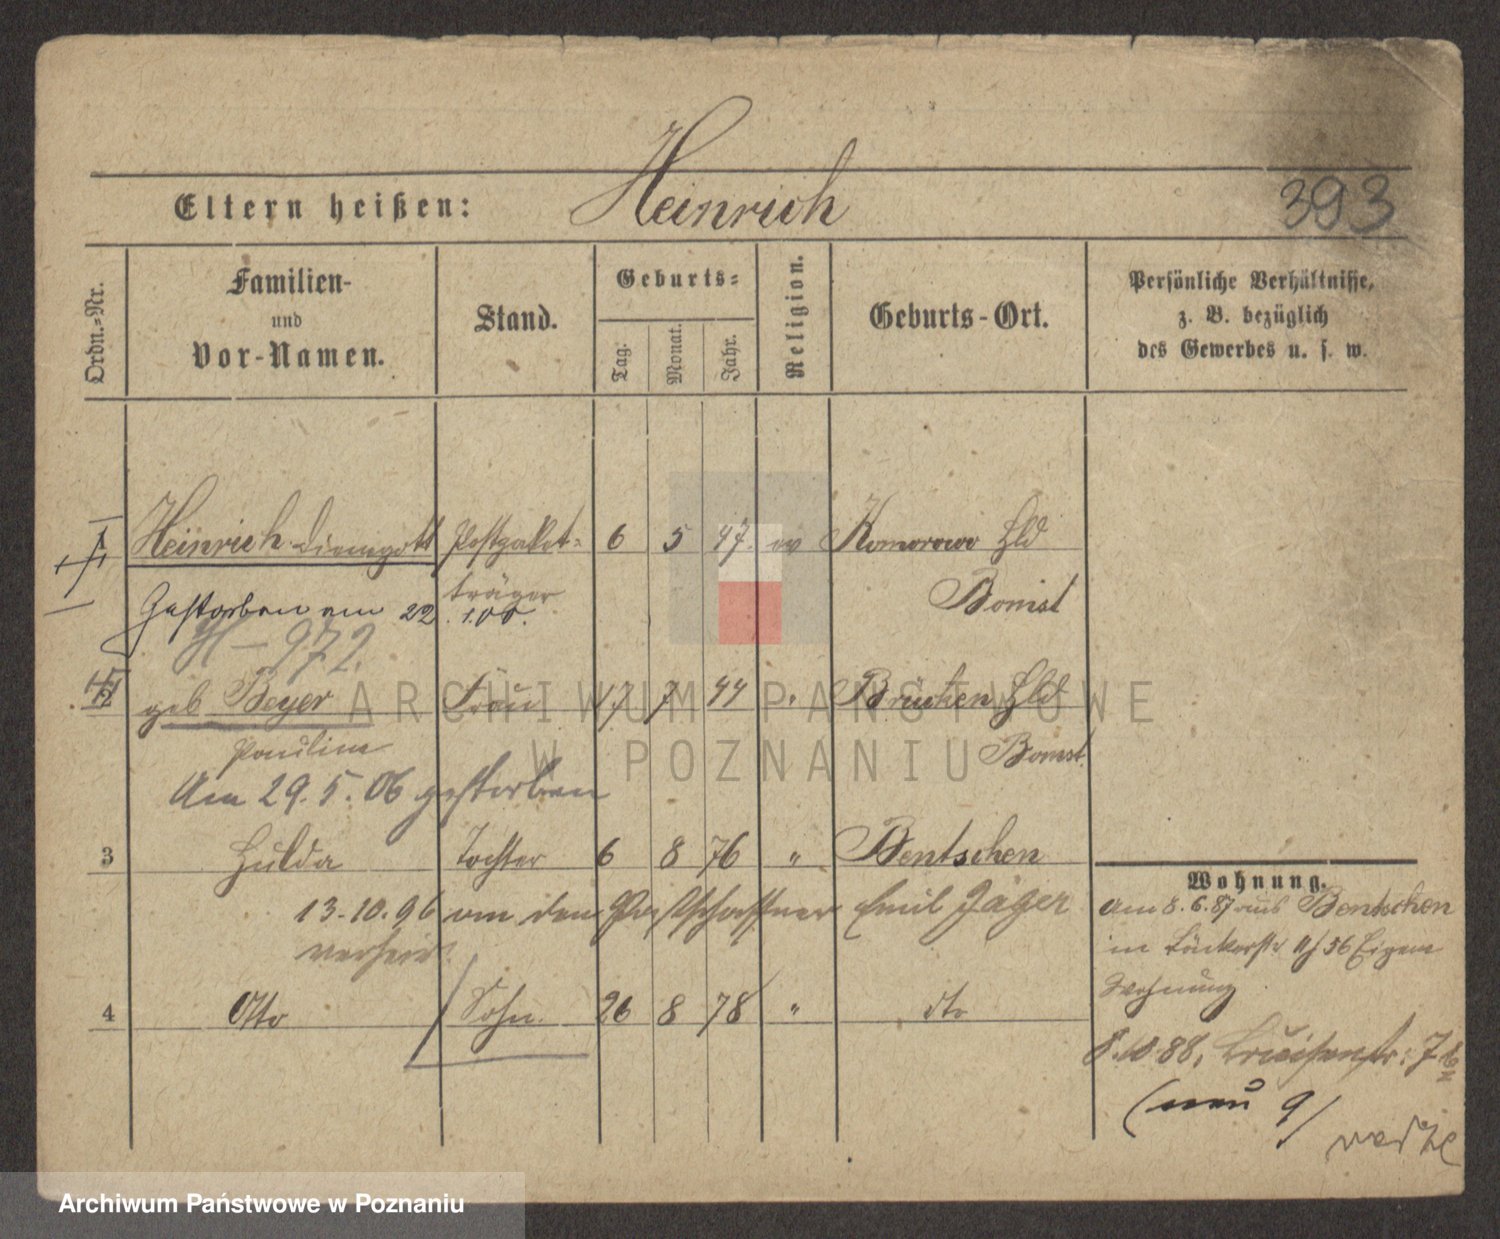 Heinrich
393
Eltern heißen:
Ordn.-Nr.
Familien-
und
Vor-Namen.
Stand.
Geburts-
Tag.
Monat.
Jahr.
Religion.
Geburts-Ort.
Persönliche Verhältnisse,
z. B. bezüglich
des Gewerbes u. s. w.
1 Heinrich Postpaket- 6 5 47. ev Komorowo Hld
träger Bomst
Gestorben am 22. 1. 00.
H - 972
2 geb Beyer Frau 17 7 44 " Hld
Pauline Bomst
Am 29. 5. 06 gestorben
3 Hulda Tochter 6 8 76 " Bentschen
13.10.96 an den Postschaffner Emil Jäger
verheir.
4 Otto Sohn. 26 8 78 " dto
Wohnung.
Am 8.6.87 aus Bentschen
in 56 Eigene
Wohnung
8.10.88, Louisenstr: 7b
(neu 9)
ARCHIWUM PAŃSTWOWE
W POZNANIU
Archiwum Państwowe w Poznaniu